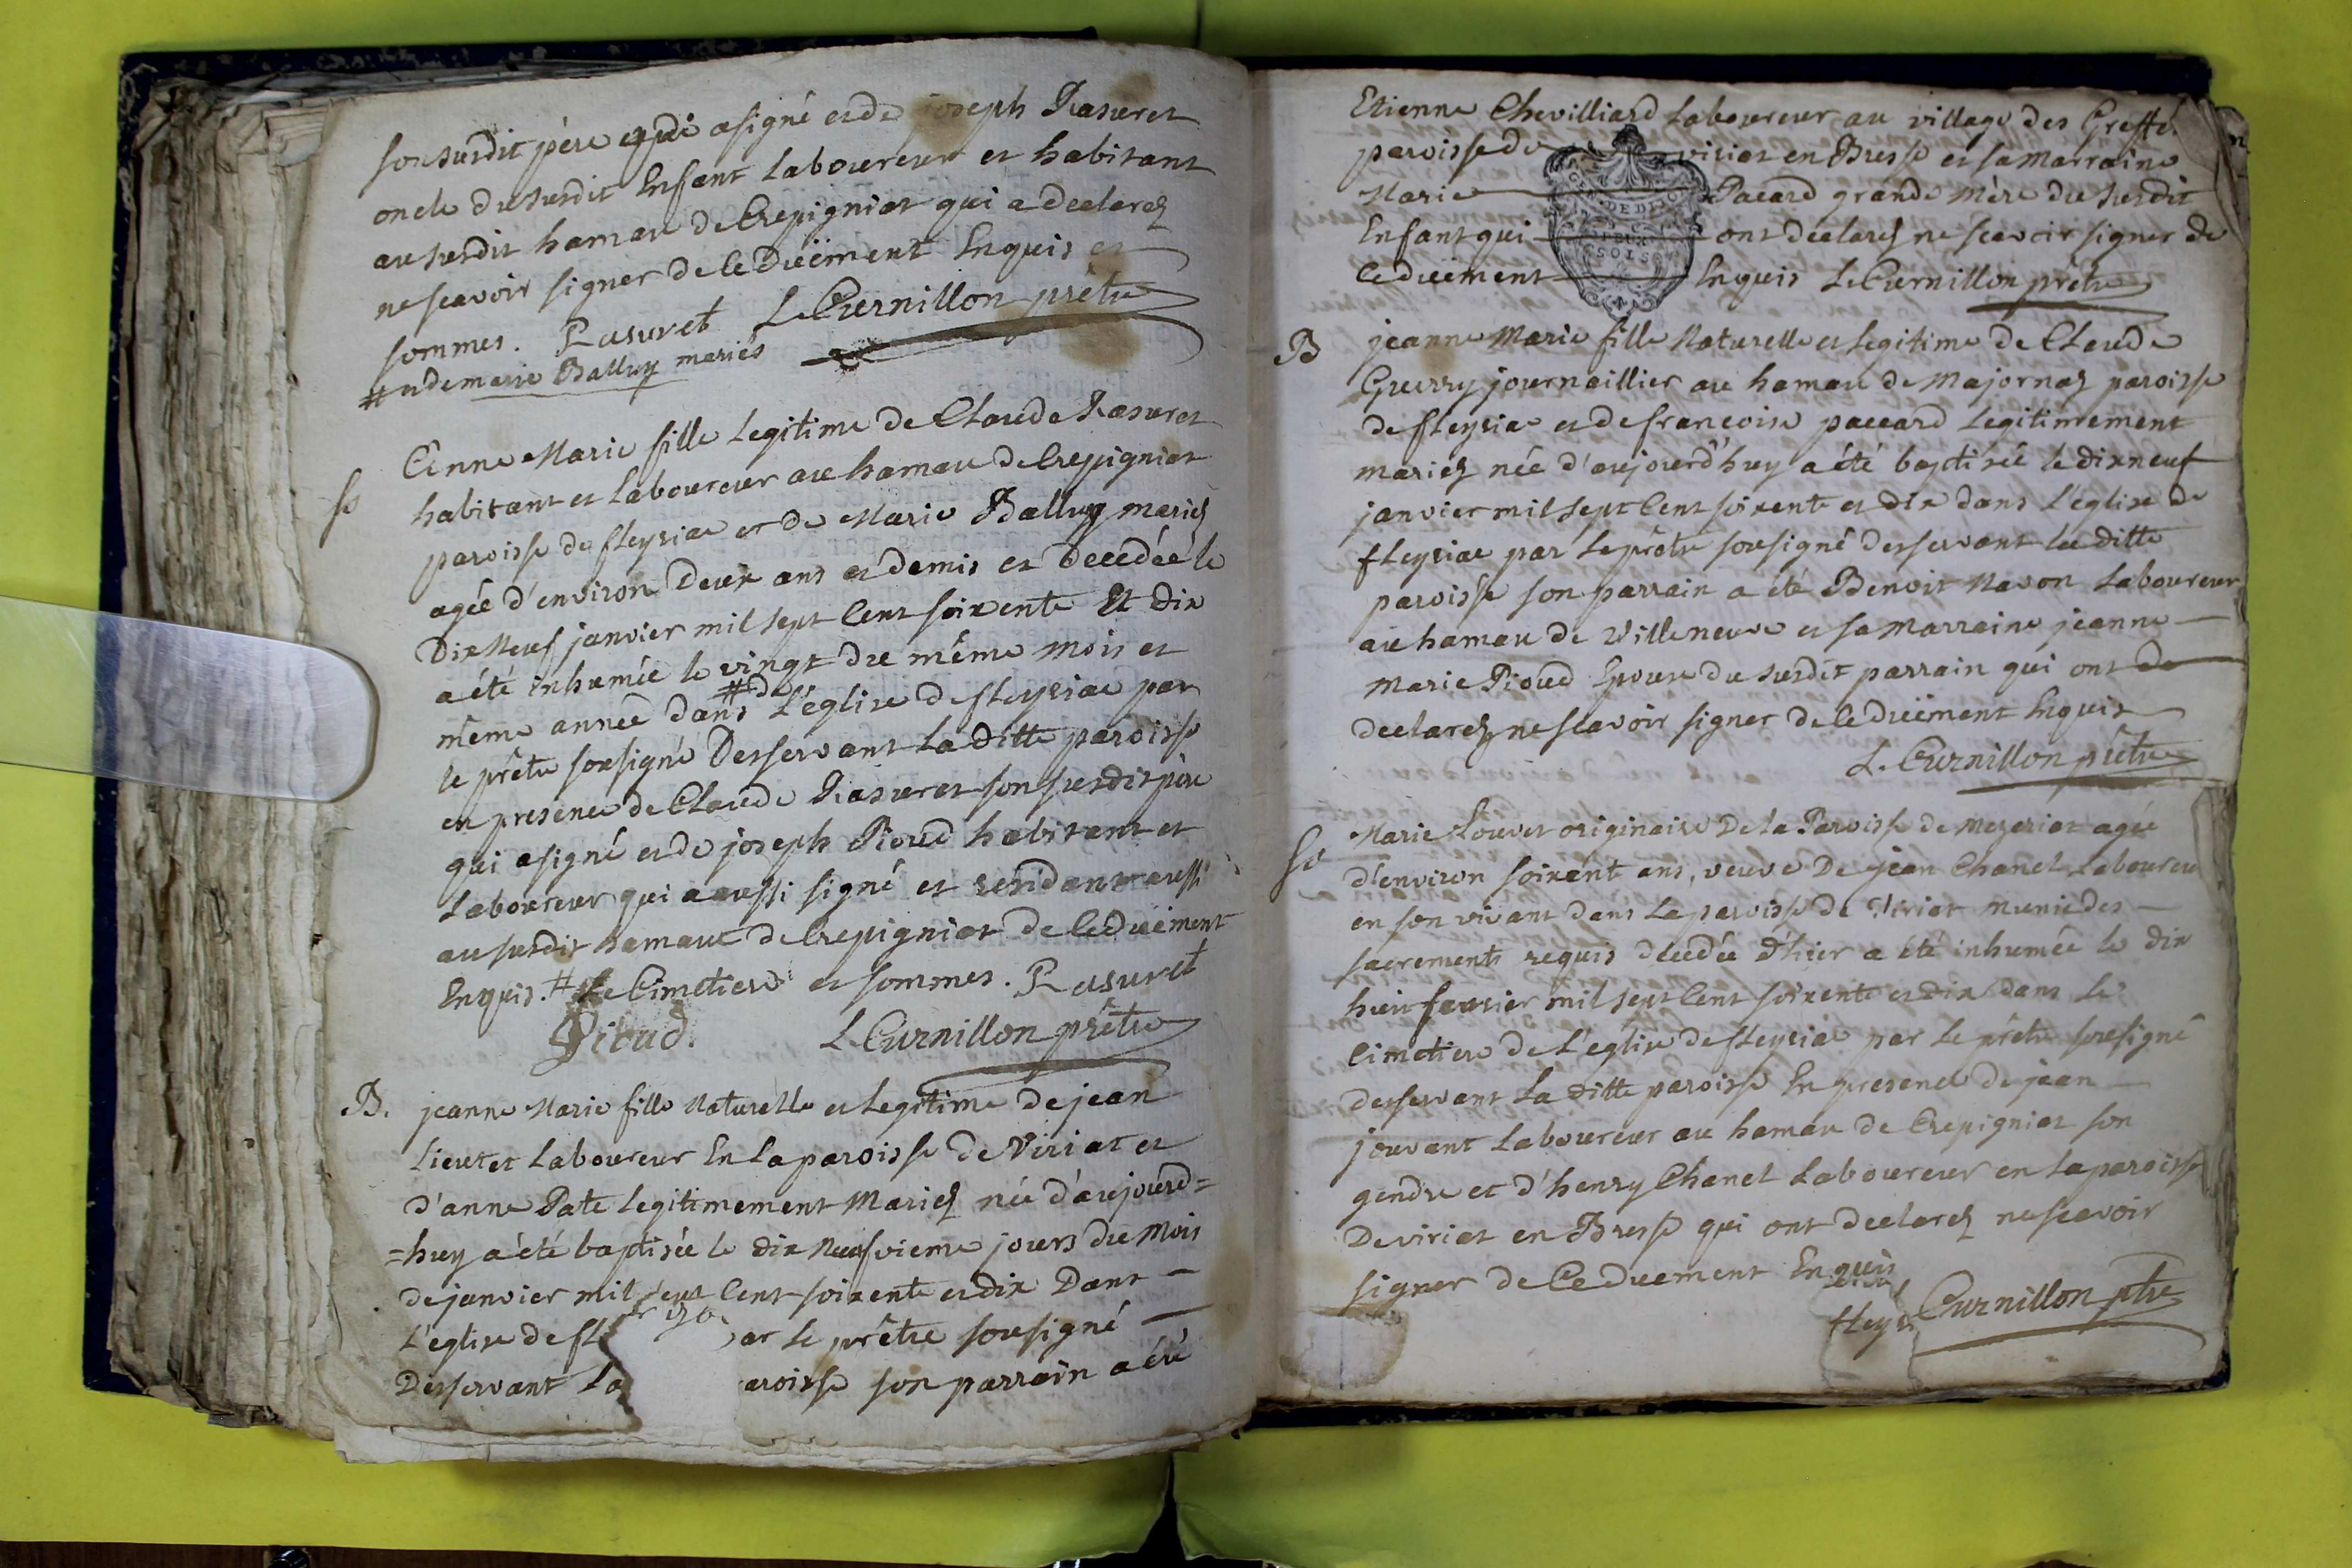 son susdit père qui a signé et de joseph Rasuret
oncle du susdit Enfant Laboureur et habitant
au susdit hamau de Crepigniat qui a declarez
ne scavoir signer de ce düement Enquis et
sommes. Rasuret L. Curnillon prêtre
# et de marie Balluy mariés
So
Anne Marie fille legitime de Claude Rasuret
habitant et Laboureur au hamau de Crepigniat
paroisse de fleyriac et de Marie Balluy mariez
agée d'environ deux ans et demis et decedée le
Dix Neuf janvier mil sept Cent soixente Et dix
a été inhumée le vingt du même mois et
même année dans # de L'église de fleyriac par
le prêtre sousigné Desservant La ditte paroisse
en presence de Claude Rasuret son susdit père
qui a signé et de joseph Pioud habitant et
Laboureur qui a aussi signé et residant aussi
au susdit hamaut de Crepigniat de ce düement
Enquis. # Le Cimetiere et sommes. Rasuret
Pioud. L. Curnillon prêtre
B. jeanne Marie fille Naturelle et Legitime de jean
Lieutet Laboureur En La paroisse de Viriat et
d'anne Pate Legitimement Mariez née d'aujourd=
=huy a été baptisée le dix Neufvieme jours du Mois
de janvier mil sept Cent soixente et dix Dant
L'église de fl ar le prêtre sousigné
Desservant La aroisse son parrain a été
Etienne Chevilliard Laboureur au village des Greffé
paroisse de viriat en Bresse et sa Marraine
Marie Pacard grande Mère du susdit
Enfant qui ont declarez ne scavoir signer de
ce düement Enquis L. Curnillon prêtre
B jeanne Marie fille Naturelle et Legitime de Claude
Guerry journaillier au hamau de Majornaz paroisse
de fleyriac et de francoise paccard Legitimement
mariez née d'aujourd'huy a été baptisée le dix neuf
janvier mil sept Cent soixente et dix dans L'église de
fleyriac par Le prêtre sousigné desservant la ditte
paroisse son parrain a été Benoit Navon Laboureur
au hamau de Villeneuve et sa Marraine jeanne
Marie Pioud Epouse du susdit parrain qui ont de
declarez ne scavoir signer de ce düement Enquis
L. Curnillon prêtre
So
Marie Louvet originaire De La Paroisse de Mezeriat agée
d'environ soixent ans, veuve De jean Chanel Laboureu
en son vivant dans La paroisse de Viriat Munie des
sacrements requis decedée d'hier a été inhumée le dix
huit fevrier mil sept Cent soixente et dix dans Le
Cimetiere de L'église de fleyriac par Le prêtre sousigné
desservant La ditte paroisse En presence de jean
jouvant Laboureur au hamau de Crepigniat son
gendre et d'henry Chanel Laboureur en La paroisse
De viriat en Bresse qui ont declarez ne scavoir
signer de Ce düement Enquis
fleyri Curnillon ptre